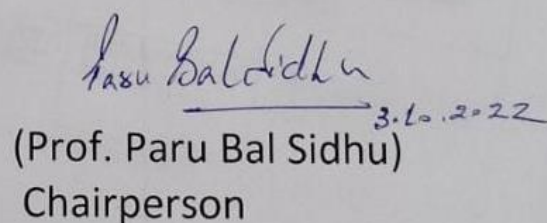 Paru Bal Sidhu
3.10.2022
(Prof. Paru Bal Sidhu)
Chairperson